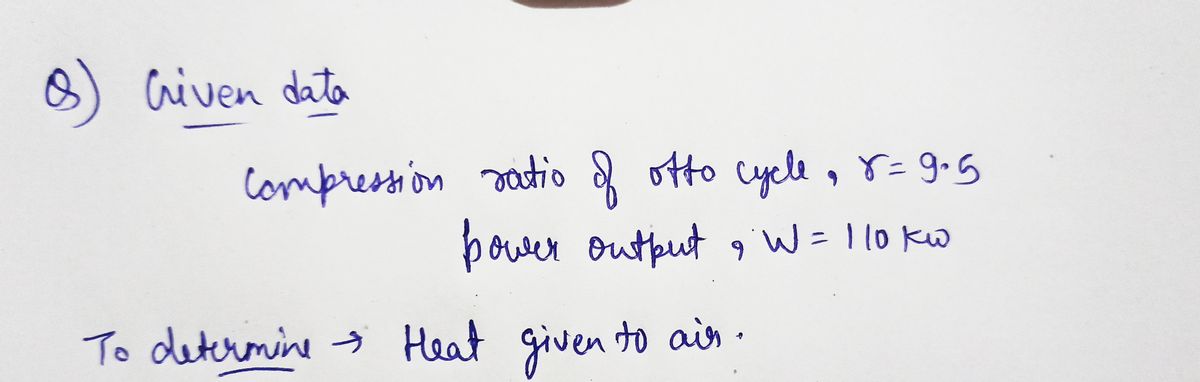 Q) Given data
Compression ratio of otto cycle, r = 9.5
power output, W = 110 kW
To determine → Heat given to air.